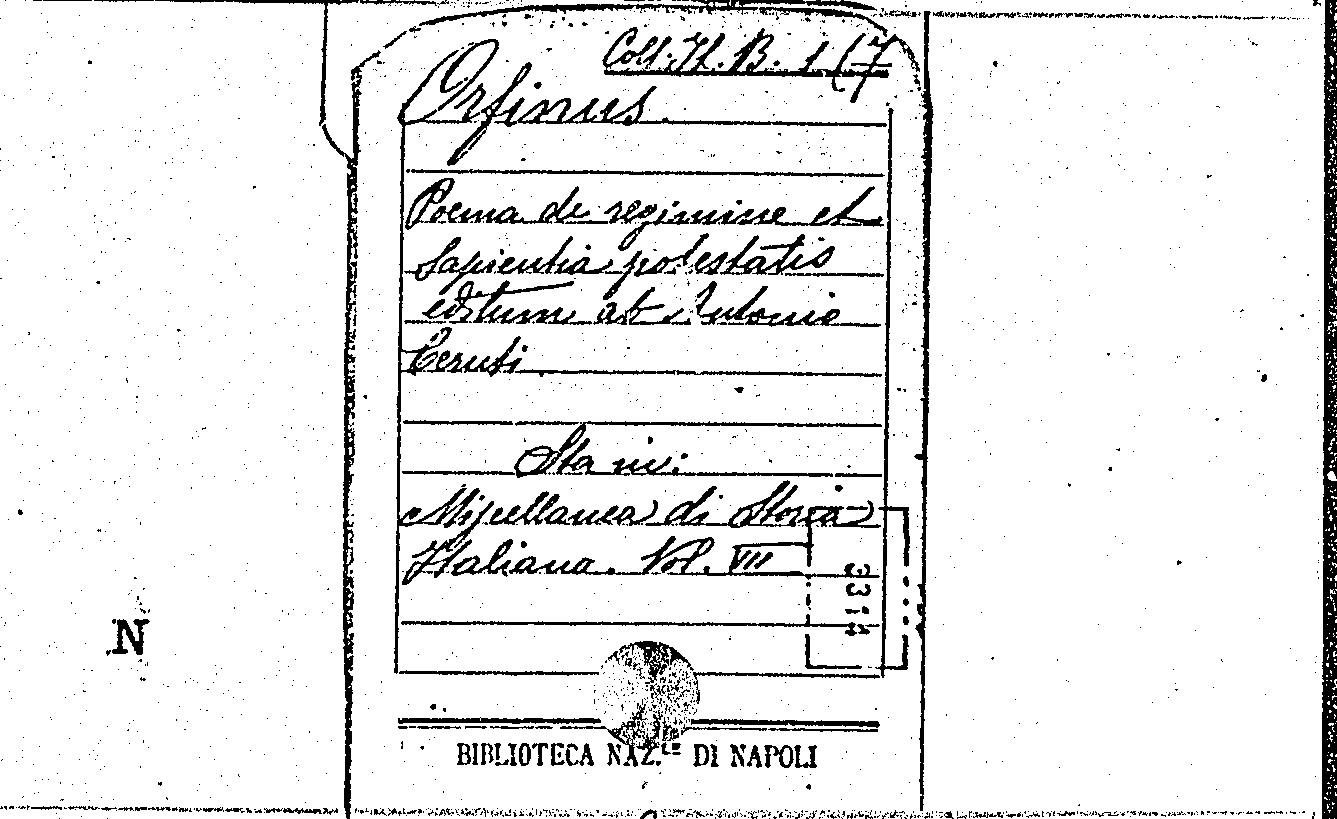 Coll. It. B. 1 (7
Orfinus.
Poema de regimine et
Sapientia potestatis
editum ab Antonio
Ceruti.
Sta in:
Miscellanea di Storia
Italiana. Vol. VII
N
BIBLIOTECA NAZ.LE DI NAPOLI